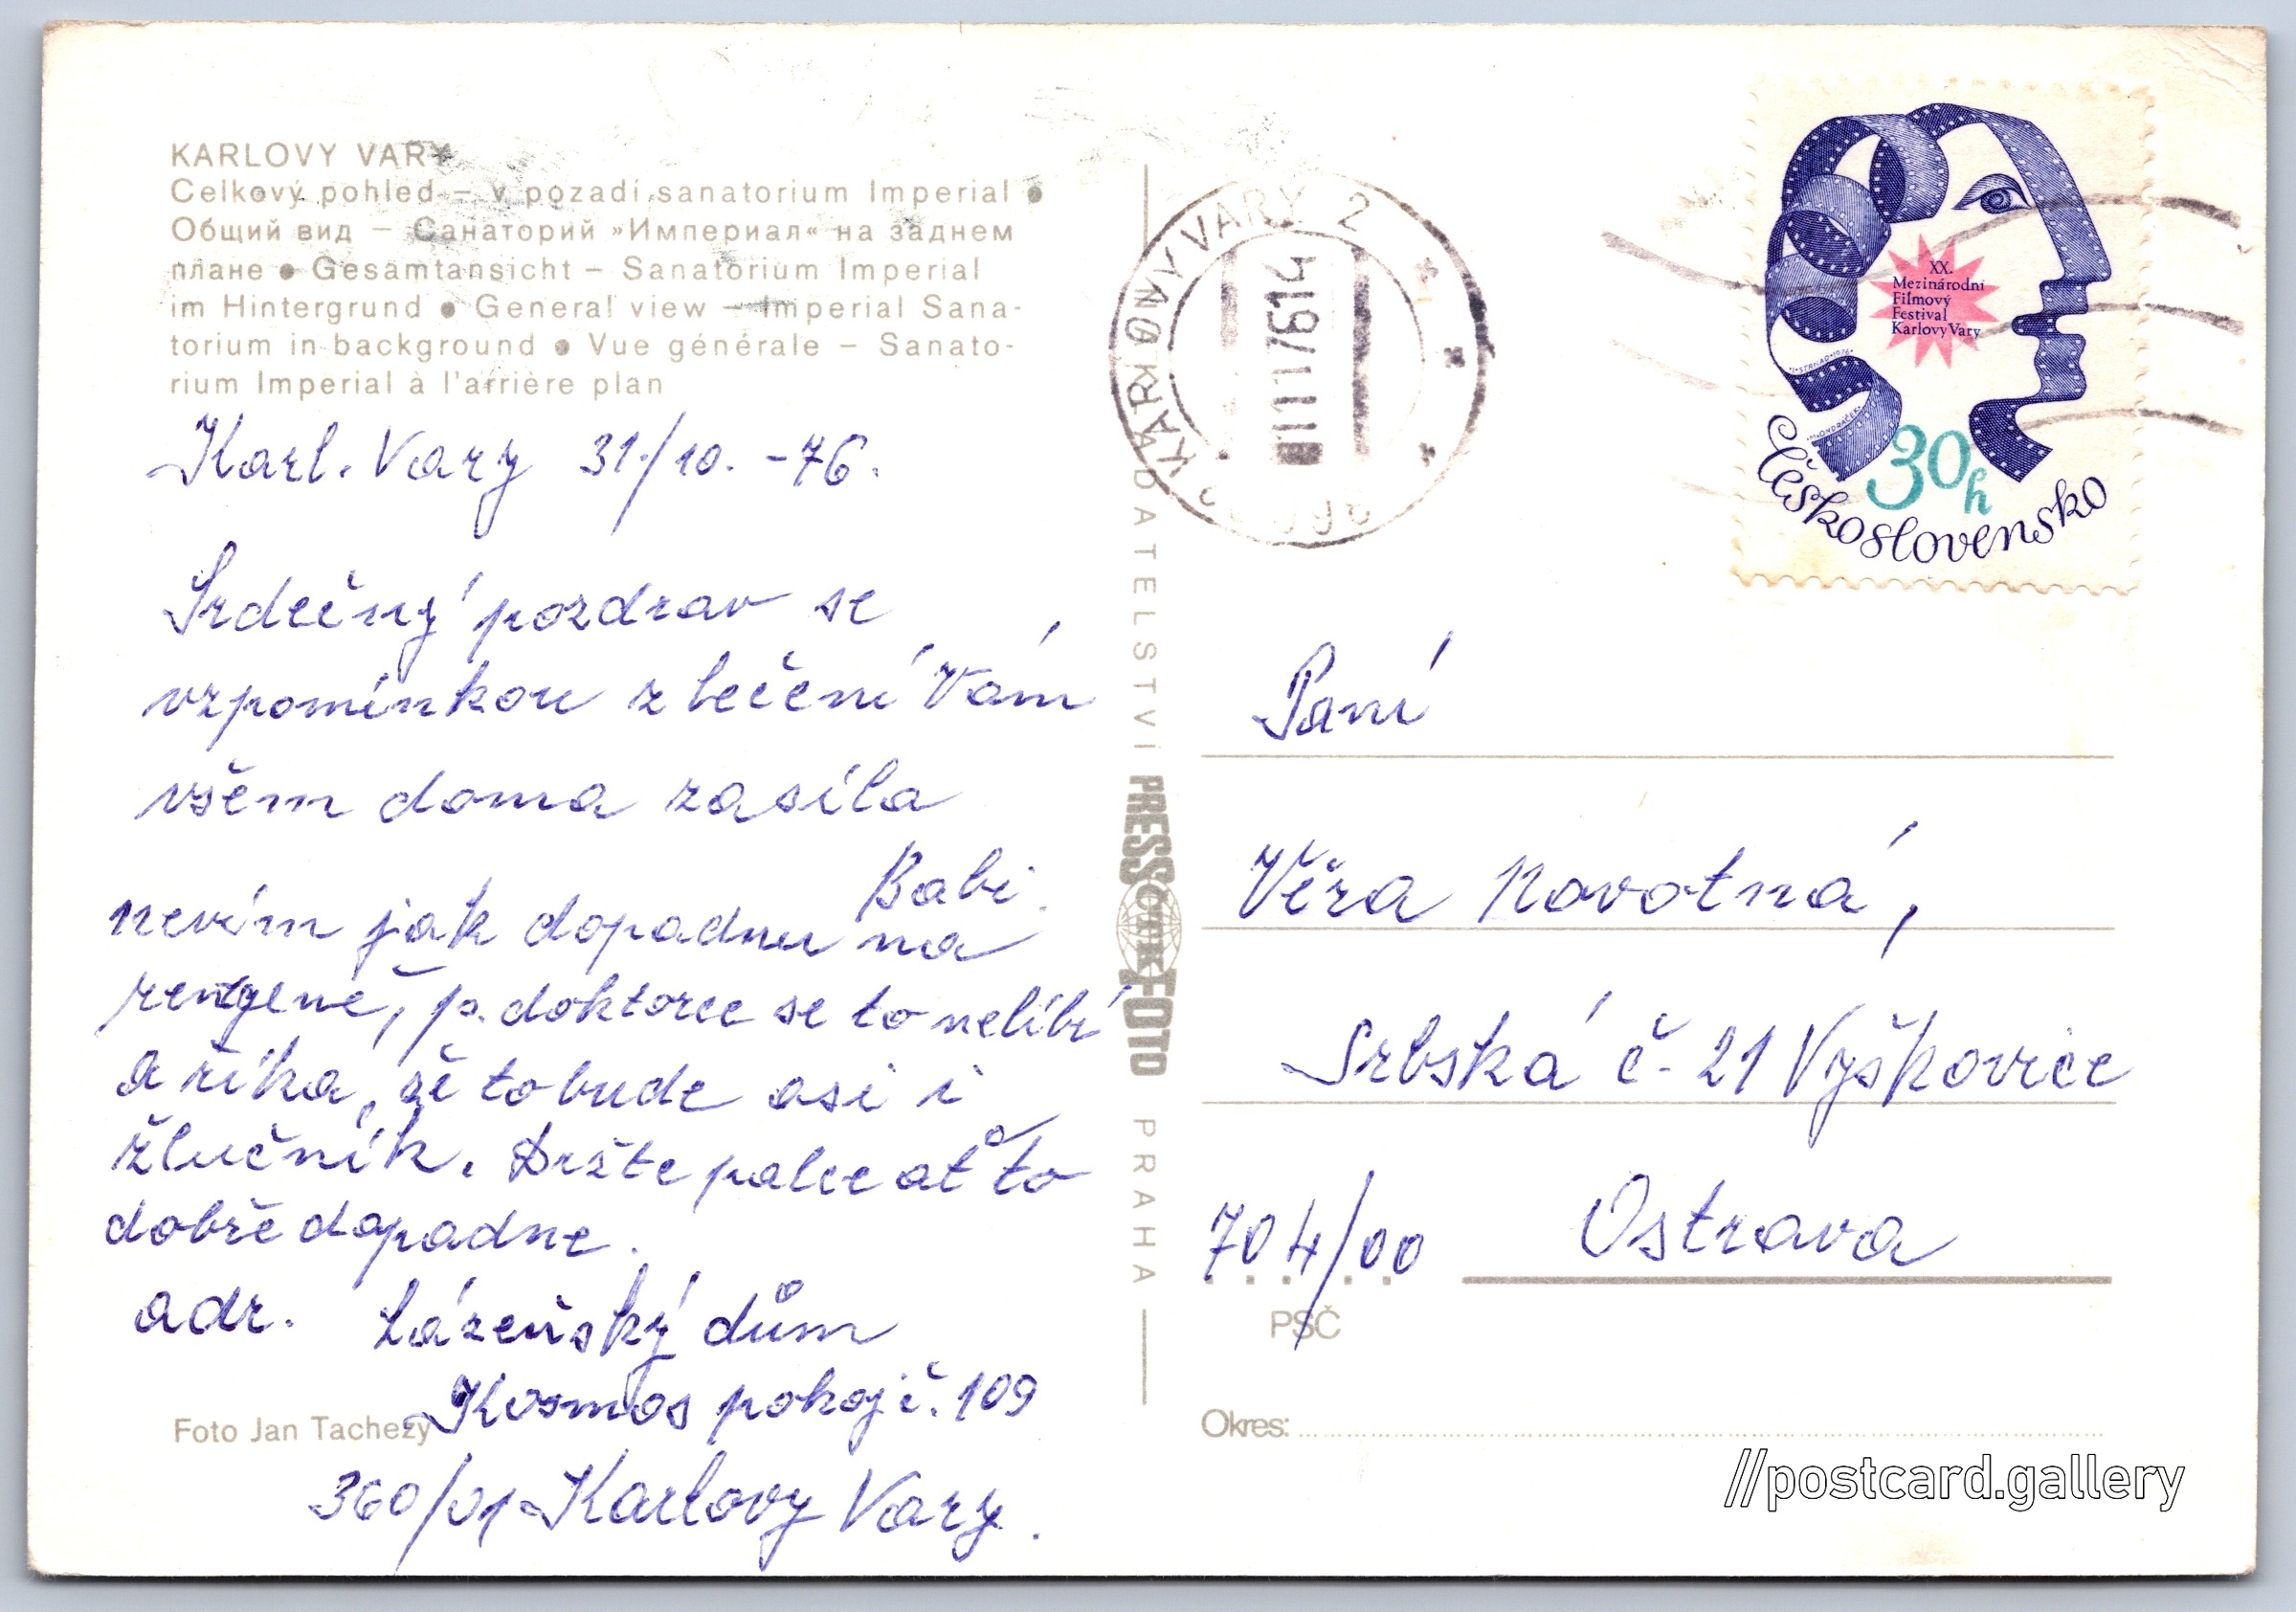 KARLOVY VARY
Celkový pohled – v pozadí sanatorium Imperial ●
Общий вид – Санаторий »Империал« на заднем
плане ● Gesamtansicht – Sanatorium Imperial
im Hintergrund ● General view – Imperial Sana-
torium in background ● Vue générale – Sanato-
rium Imperial à l'arrière plan
Karl. Vary 31./10. -76.
Srdečný pozdrav se
vzpomínkou z léčení Vám
všem doma zasílá
Babi.
nevím jak dopadnu na
rentgeně, p. doktorce se to nelíbí
a říká, že to bude asi i
žlučník. Držte palce ať to
dobře dopadne.
adr. Lázeňský dům
Kosmos pokoj č. 109
360/01 Karlovy Vary.
Foto Jan Tachezy
VYDATELSTVÍ PRESSFOTO PRAHA
ČTK
KARLOVY VARY 2
-1.11.76-14
XX.
Mezinárodní
Filmový
Festival
Karlovy Vary
J•STRNAD•1976•
•M•ONDRÁČEK•
30h
Československo
Paní
Věra Novotná,
Srbská č. 21 Vyškovice
704/00 Ostrava
PSČ
Okres:
//postcard.gallery